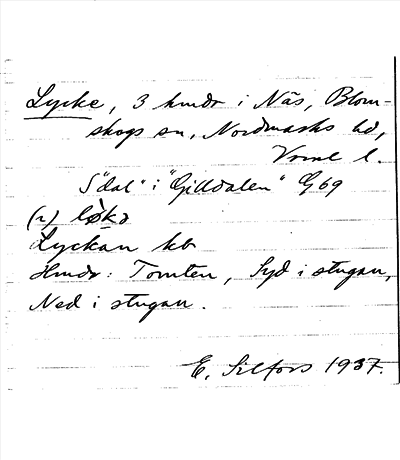 Lycke, 3 hmdr i Näs, Blom-
skogs sn, Nordmarks hd,
Vrml l.
S "dal" i "Gilldalen" G69
(r) løka
Lyckan kb
Hmdr: Tomten, Syd i stugan,
Ned i stugan.
E. Silfors 1937.